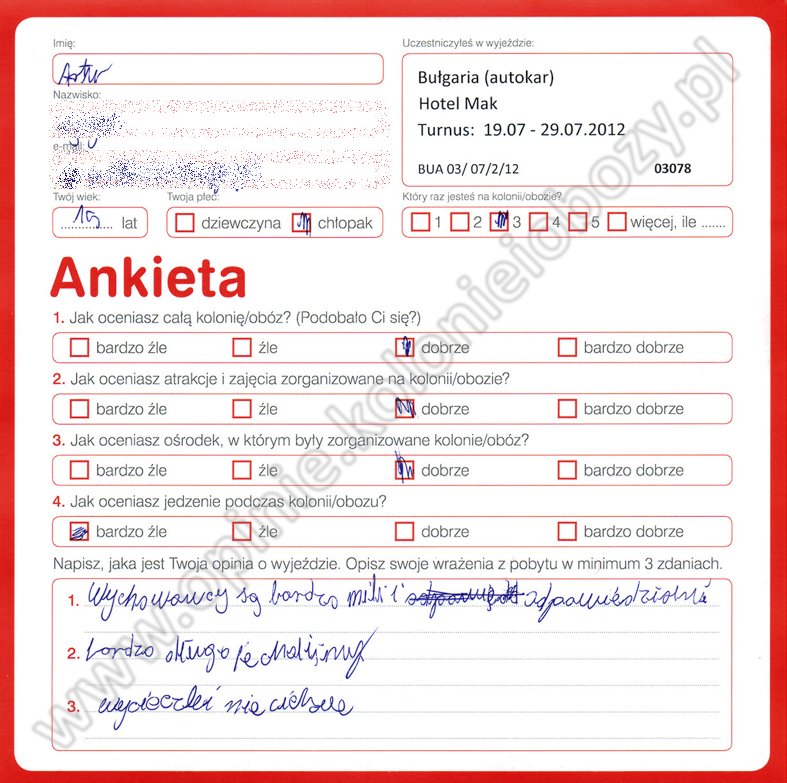 Imię:
Uczestniczyłeś w wyjeździe:
Artur
Bułgaria (autokar)
Hotel Mak
Turnus: 19.07 - 29.07.2012
BUA 03/ 07/2/12 03078
Nazwisko:
e-mail:
Twój wiek:
Twoja płeć:
Który raz jesteś na kolonii/obozie?
15 lat
dziewczyna chłopak
1 2 3 4 5 więcej, ile .......
Ankieta
1. Jak oceniasz całą kolonię/obóz? (Podobało Ci się?)
bardzo źle źle dobrze bardzo dobrze
2. Jak oceniasz atrakcje i zajęcia zorganizowane na kolonii/obozie?
bardzo źle źle dobrze bardzo dobrze
3. Jak oceniasz ośrodek, w którym były zorganizowane kolonie/obóz?
bardzo źle źle dobrze bardzo dobrze
4. Jak oceniasz jedzenie podczas kolonii/obozu?
bardzo źle źle dobrze bardzo dobrze
Napisz, jaka jest Twoja opinia o wyjeździe. Opisz swoje wrażenia z pobytu w minimum 3 zdaniach.
1. Wychowawcy są bardzo mili i odpowiedzialni
2. bardzo długo jechaliśmy
3. wycieczki nie ciekawe
www.opinie.kolonieiobozy.pl